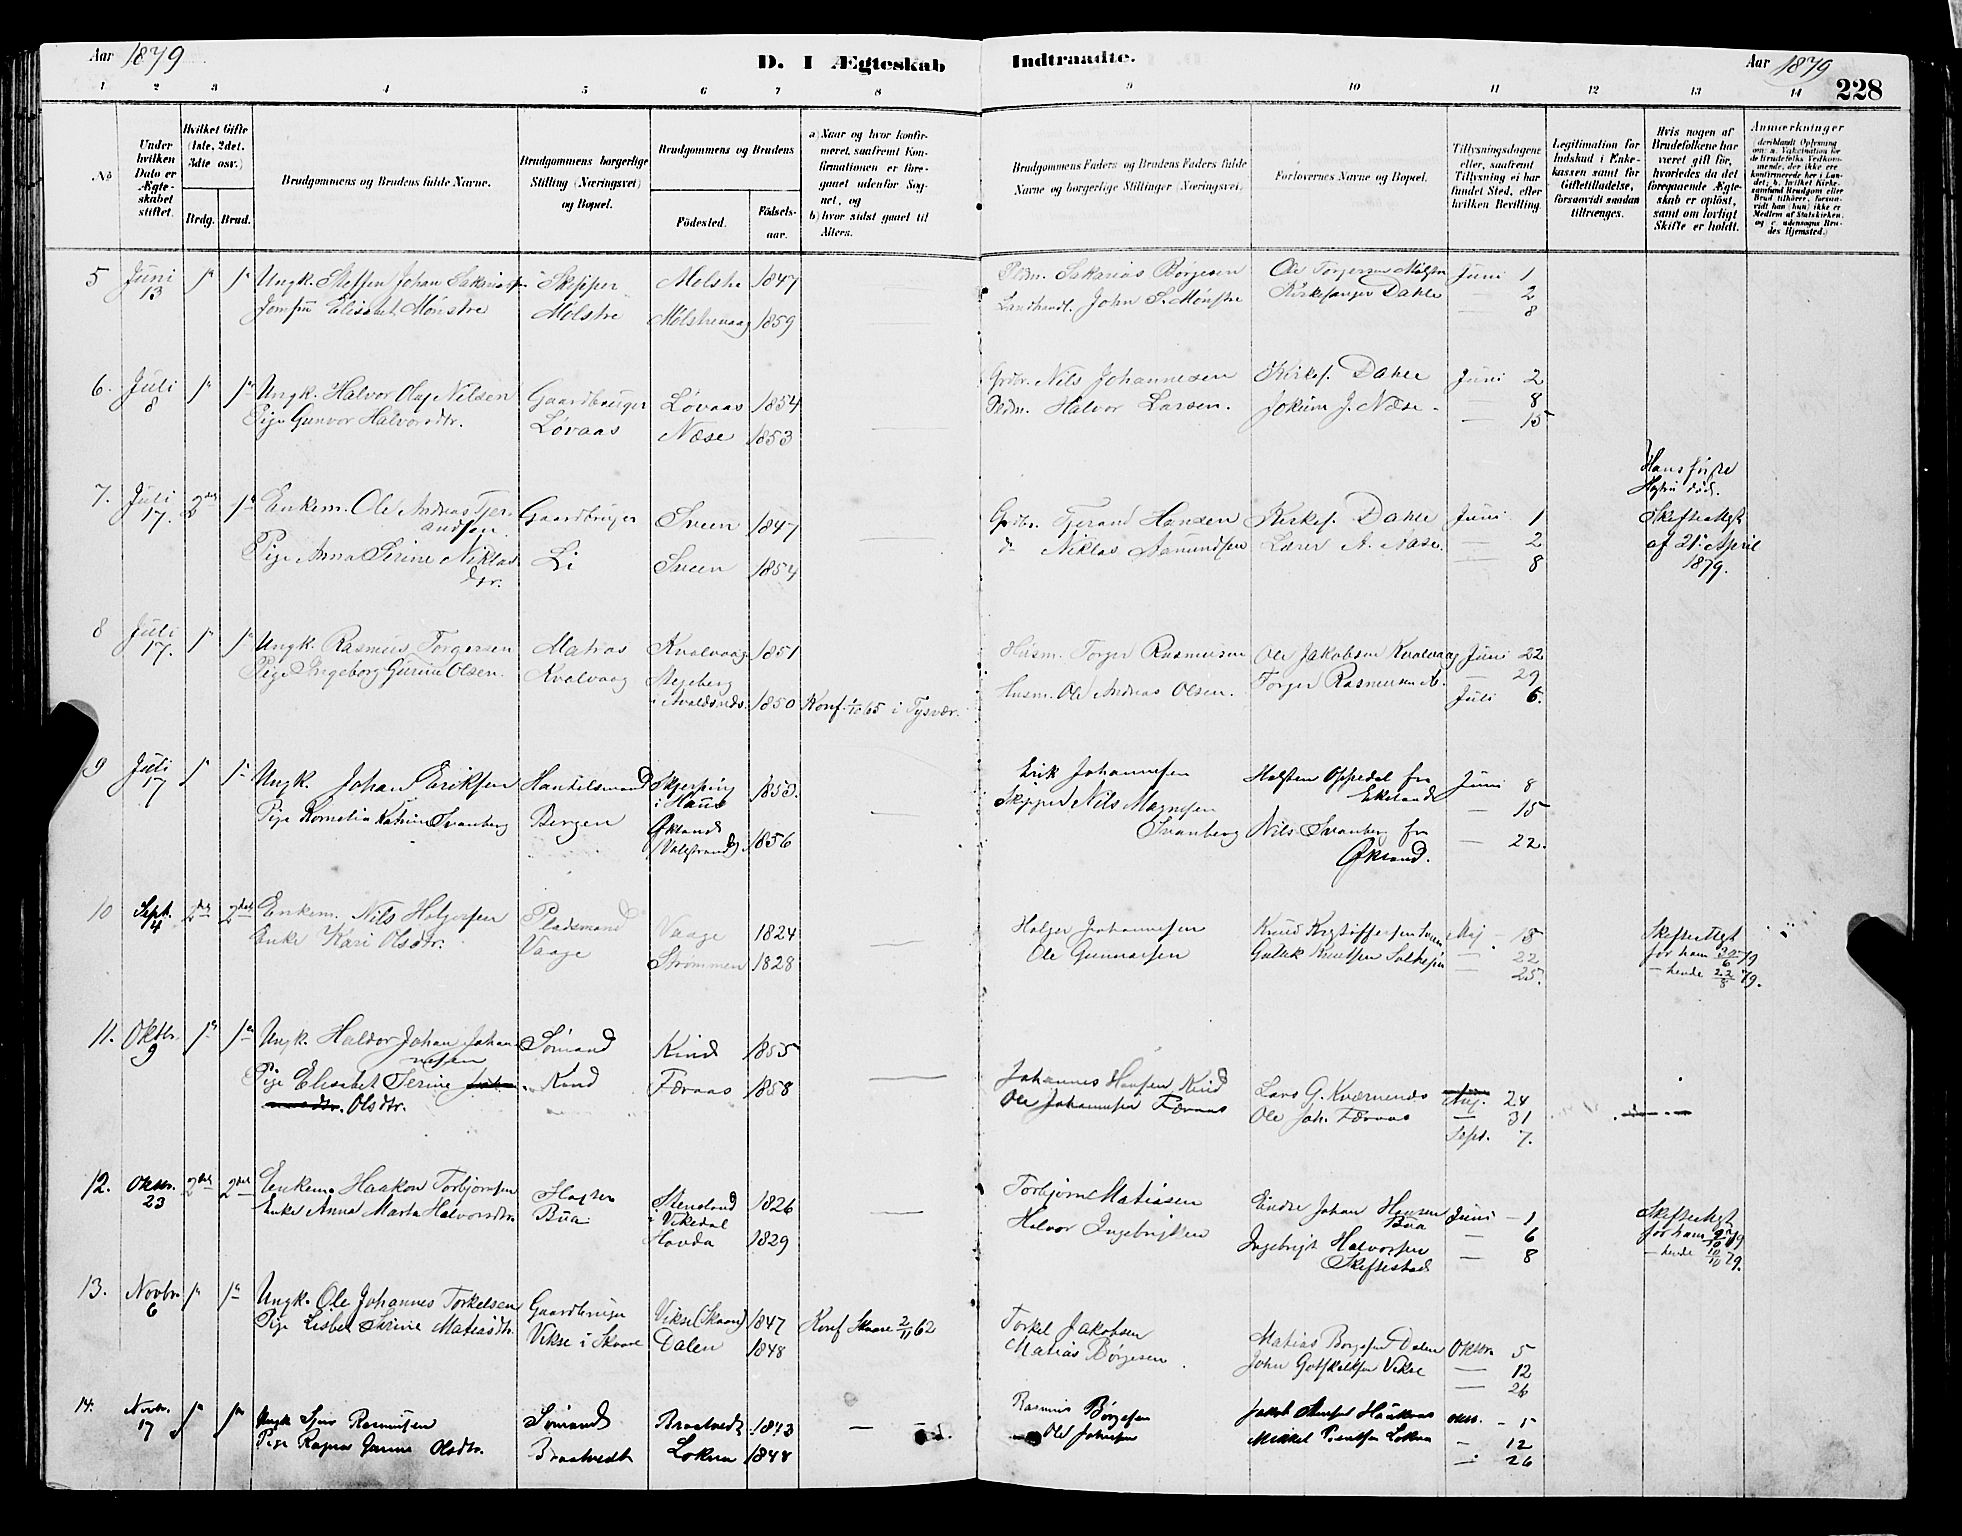 Aar 1879
D. I Ægteskab Indtraadte.
Aar 1879
228
1 2 3 4 5 6 7 8 9 10 11 12 13 14
No
Under hvilken Dato er Ægteskabet stiftet.
Hvilket Gifte (1ste, 2det, 3die osv.)
Brdg. Brud.
Brudgommens og Brudens fulde Navne.
Brudgommens borgerlige Stilling (Næringsvei) og Bopæl.
Brudgommens og Brudens
Födested. Födsels-aar.
a) Naar og hvor konfirmeret, saafremt Konfirmationen er foregaaet udenfor Sognet, og
b) hvor sidst gaaet til Alters.
Brudgommens Faders og Brudens Faders fulde Navne og borgerlige Stillinger (Næringsvei).
Forlovernes Navne og Bopæl.
Tillysningsdagene eller, saafremt Tillysning ei har fundet Sted, efter hvilken Bevilling.
Legitimation for Indskud i Enkekassen samt for Giftetilladelse, forsaavidt saadan tiltrænges.
Hvis nogen af Brudefolkene har været gift för, hvorledes da det foregaaende Ægteskab er oplöst, samt om lovligt Skifte er holdt.
Anmærkninger
5 Juni 13 1ste 1ste Ungk. Steffen Johan Sakariassen Skipper Molstre 1847 Pldm. Sakarias Børgesen Ole Torgersen Juni 1
Jomfru Elisabet Mønstre Molstre Mølstrevaag 1859 Landhandl. John S. Mønstre Kirkesanger Dahle — 2
— 8
6. Juli 8 Ungk. Halvor Olaj Nilsen Gaardbruger Løvaas 1854 Grdbr. Nils Johannesen Kirkes. Dahle Juni 2
Pige Gunvor Halvorsdtr. Løvaas Næse 1853 Pldm. Halvor Larsen. Jokum J. Næse. — 8
— 15
7. Juli 17. 2det Enkem. Ole Andreas Tjerandsen Gaardbruger Sveen 1847 Grdbr. Tjerand Hansen Kirkes. Dahle Juni 1
Pige Anna Serine Niklasdtr. Li Sveen 1854 do Niklas Asmundsen Lærer A. Næse. — 2
— 8
Hans første Hustru død.
Skifteattest af 21. April 1879.
8 Juli 17. Ungk. Rasmus Torgersen Matros Kvalvaag 1851 Husm. Torger Rasmusen Ole Jakobsen Kvalvaag Juni 22
Pige Ingeborg Gurine Olsen. Kvalvaag Stegeberg i Avaldsnæs. 1850 Konf. 1/10 65 i Tysvær. Husm. Ole Andreas Olsen. Torger Rasmusen — 29
Juli 6.
9 Juli 17 Ungk. Johan Eriksen Handelsmand i Haus 1853. Erik Johannesen Halsten Oppedal fra Ekeland Juni 8
Pige Kornelia Katrine Svanberg Bergen Økland (Valestrand). 1856 Skipper Nils Magnesen Svanberg Nils Svanberg fra — 15
— 22.
10 Sept. 4 2det 2det Enkem. Nils Holgersen Pladsmand Vaage 1824 Holger Johannesen Knud Kristoffersen Maj 18
Enke Kari Olsdtr. Vaage Strømmen 1828 Ole Gunnarsen Gullak Knutsen — 22
— 25.
Skifteattest for ham 30/6 79 — hende 22/8 79.
11. Oktbr. 9 Ungk. Haldor Johan Johannesen Sömand Kind 1855 Johannes Hansen Kind Lars G. Kværnenes Aug. 24
Pige Elisabet Serine Olsdtr. Kind Færaas 1858 Ole Johannesen Færaas Ole Joh. Færaas — 31
Sept. 7.
12. Oktbr. 23 2det 2det Enkem. Haakon Torbjørnsen Bua Stensland i Vikedal 1826 Torbjørn Matiasen Endre Johan Hansen Bua Juni 1
Enke Anna Marta Halvorsdtr. Hovda 1829 Halvor Ingebrigtsen Ingebrigt Halvorsen Skiftestad — 6
— 8
Skifteattest for ham — hende 10/10 79.
13. Novbr. 6 Ungk. Ole Johannes Torkelsen Gaardbruger Vikse (Skaare) 1847 Konf Skaare 2/11 62 Torkel Jakobsen Matias Børgesen Dalen Oktbr. 5
Pige Lisbet Serine Matiasdtr. Vikse i Skaare Dalen 1848 Matias Børgesen. John Gotskalksen Vikse — 12
— 26
14. Novbr. 17 Ungk Sjur Rasmusen Sömand Braatvedt 1843 — Rasmus Børgesen Jakob Haukaas Oktbr. 5
Pige Ragna Gurine Olsdtr. Braatvedt Lokna 1848 Ole Johansen Mikkel Lokna — 12
— 26